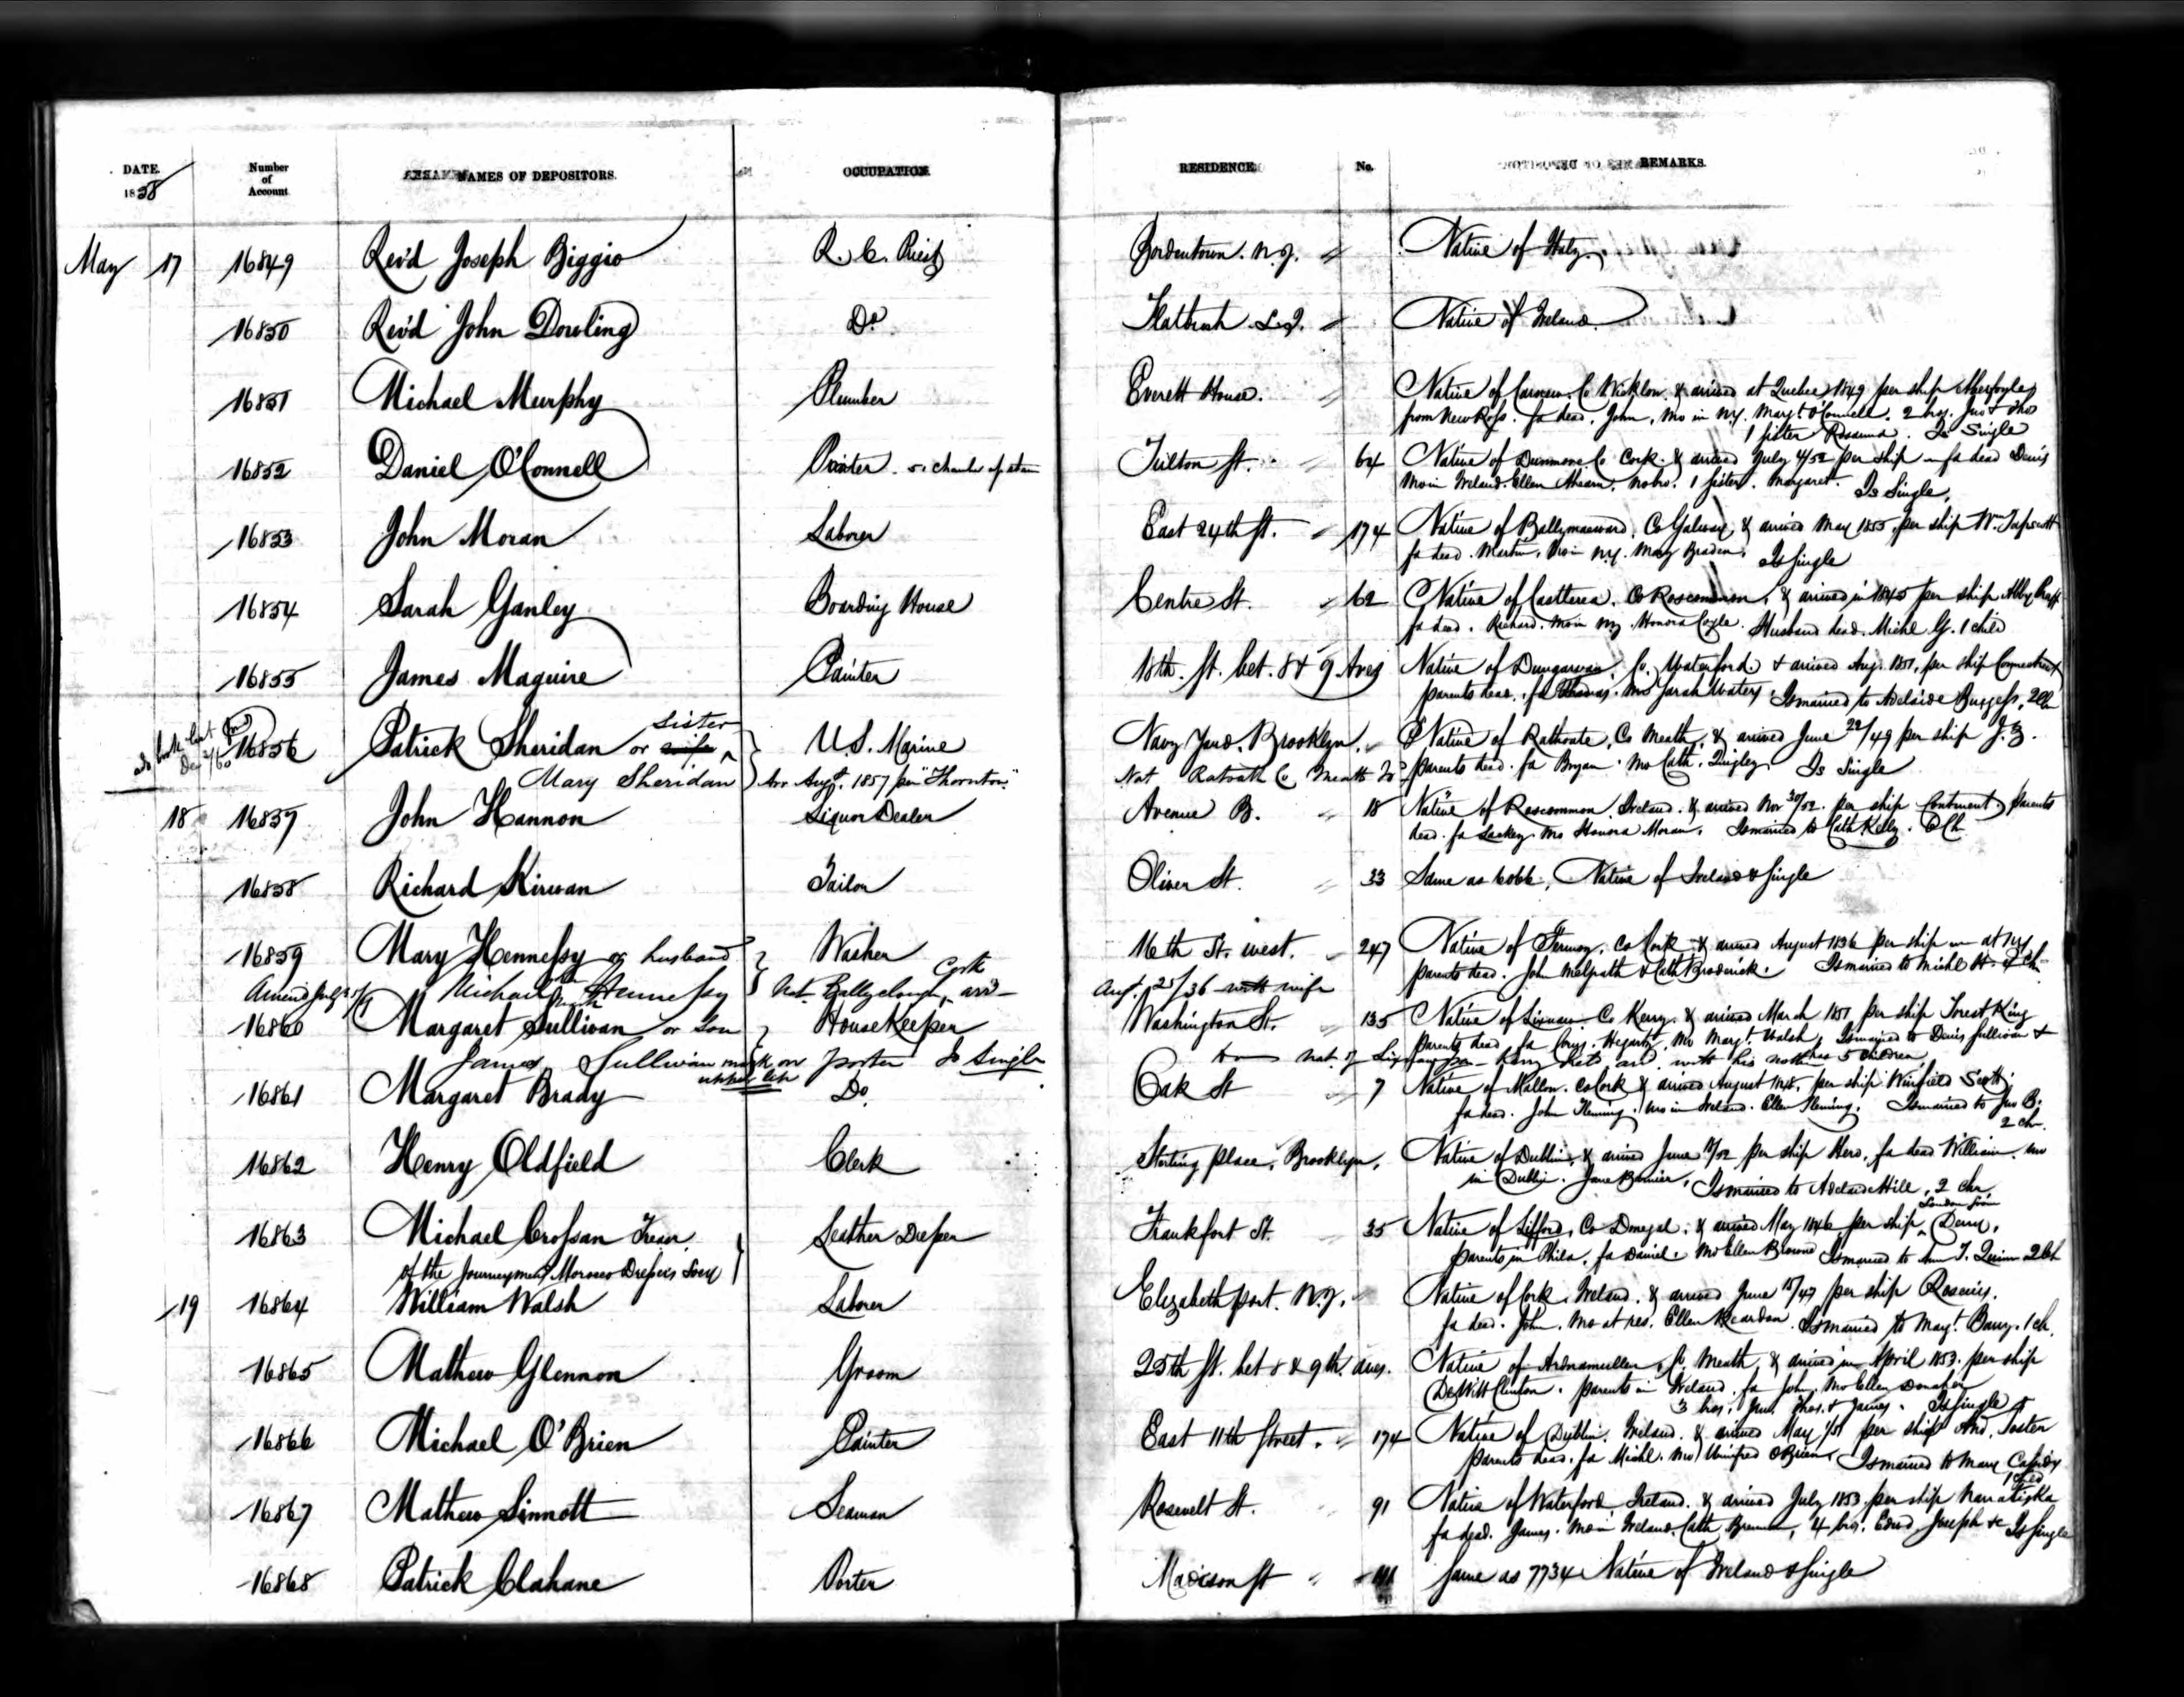 DATE. Number of Account NAMES OF DEPOSITORS. OCCUPATION RESIDENCE No. REMARKS.
1858
May 17 16849 Rev'd Joseph Biggio R. C. Priest Bordentown. N.J. " Native of Italy.
16850 Rev'd John Dowling Do. Flatbush L.I. " Native of Ireland.
16851 Michael Murphy Plumber Everett House. " Native of Co Wicklow. & arrived at Quebec 1849 per ship
from New Ross. fa dead, John, Mo in N.Y. Margt O'Connell. 2 bro. Jno & Thos
1 sister Rosanna. Is Single
16852 Daniel O'Connell Fulton St. " 64 Native of Dunmore Co Cork. & arrived July 4/52 per ship fa dead Denis
Mo in Ireland Ellen Ahearn. no bro. 1 sister. Margaret. Is Single.
16853 John Moran Laborer East 24th St. " 174 Native of Co Galway, & arrived May 1855, per ship Wm Tapscott
fa dead. Martin, Mo in N.Y. Mary Braden. Is Single
16854 Sarah Ganley Boarding House Centre St. " 62 Native of Castlerea. Co Roscommon, & arrived in 1845 per ship Abby Pratt
fa dead. Richard. Mo in NY. Honora Coyle. Husband dead. Michl G. 1 child
16855 James Maguire Painter 18th. St. bet. 8 & 9 Aves Native of Dungarvan. Co. Waterford. & arrived Aug. 1851, per ship Connecticut
parents dead. fa Thomas. Mo Sarah Waters. Is married to Adelaide Burgess, 2 Ch
sister
16856 Patrick Sheridan or wife U.S. Marine Navy Yard, Brooklyn. " Native of Rathoate, Co Meath, & arrived June 22/49 per ship J.Z.
Mary Sheridan Arr. Augt. 1857 per "Thornton" Nat Ratoath Co Meath parents dead. fa Bryan. Mo Cath. Quigley. Is Single
18 16857 John Hannon Liquor Dealer Avenue B. " 18 Native of Roscommon, Ireland. & arrived Nov 30/52. per ship Continent. parents
dead. fa Lackey Mo Honora Moran. Is married to Cath Kelly.
16858 Richard Kirwan Tailor Oliver St. " 33 Same as 6066. Native of Ireland & Single
16859 Mary Hennessy or husband Washer 16th St. west. " 247 Native of Fermoy. Co Cork & arrived August 1836 per ship at NY
parents dead. John & Cath Broderick. Is married to Michl H. 4 Ch
Michael Hennessy Nat. Ballyclough, Cork arrd Aug. 25/36 with wife
16860 Margaret Sullivan or son Housekeeper Washington St. " 135 Native of Lixnaw. Co Kerry. & arrived March 1851 per ship Forest King
parents dead fa Hegarty Mo Margt. Walsh. Is married to Denis Sullivan &
James Sullivan mark on upper lip porter Is Single nat. of Kerry with his mother has 5 children
16861 Margaret Brady Do. Oak St " 7 Native of Mallow. Co Cork & arrived August per ship Winfield Scott.
fa dead. John Fleming. Mo in Ireland. Ellen Fleming. Is married to Jno B.
2 ch.
16862 Henry Oldfield Clerk Sterling place, Brooklyn. Native of Dublin, & arrived June per ship Hero, fa dead William. mo
in Dublin. Jane. Is married to Adelaide Hill, 2 Chn
16863 Michael Crossan Treasr. Leather Dresser Frankfort St. " 35 Native of Lifford, Co Donegal. & arrived May 1846 per ship London from Derry.
of the Journeymens Morocco Dressers Socy parents in Phila. fa Daniel. Mo Ellen Browne Is married to Ann T. Quinn 2 Ch
19 16864 William Walsh Laborer Elizabethport. N.J. " Native of Cork. Ireland. & arrived June 15/47 per ship Roscius.
fa dead. John. Mo at res. Ellen Reardon. Is married to Margt. Barry. 1 ch.
16865 Mathew Glennon Groom 25th St. bet 8 & 9th aves. Native of Co. Meath, & arrived in April 1853. per ship
DeWitt Clinton. parents in Ireland. fa John. Mo Ellen Donahoe
3 bros. Thos. & James. Is Single
16866 Michael O'Brien Painter East 11th Street. " 174 Native of Dublin. Ireland. & arrived May 1/51 per ship And. Foster
parents dead. fa Michl. mo Winifred OBrien. Is married to Mary Cassidy
16867 Mathew Sinnott Seaman Rosevelt St. 91 Native of Waterford Ireland. & arrived July 1853 per ship
fa dead. James. Mo in Ireland. Cath Brennan, 4 bro. Edwd Joseph &c Is Single
16868 Patrick Clahane Porter Madison St " 111 Same as 7734 Native of Ireland & Single